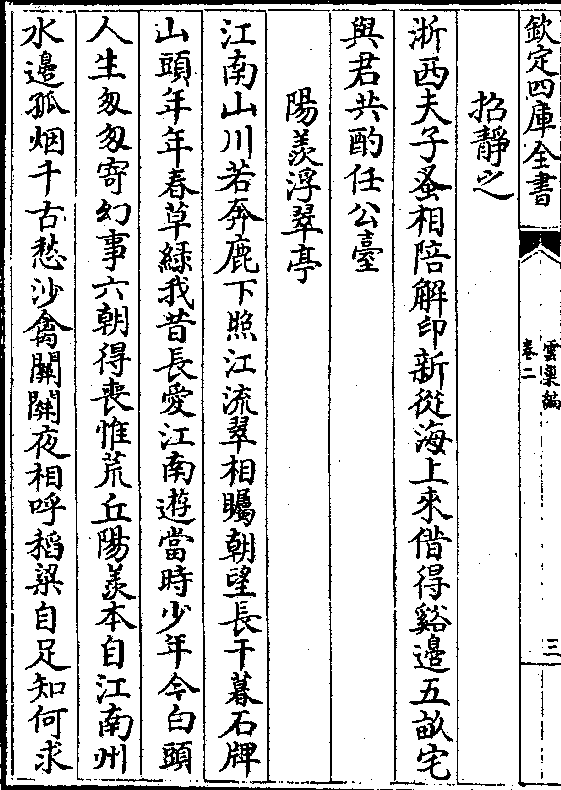 欽定四庫全書
雲巢編
卷二
三
招靜之
浙西夫子蚤相陪解印新從海上來偕得谿邉五畝宅
與君共酌任公臺
陽羨浮翠亭
江南山川若奔鹿下照江流翠相矚朝望長干暮石牌
山頭年年春草緑我昔長愛江南遊當時少年今白頭
人生匆匆寄幻事六朝得喪惟荒丘陽羨本自江南州
水邉孤烟千古愁沙禽關關夜相呼稻粱自足知何求